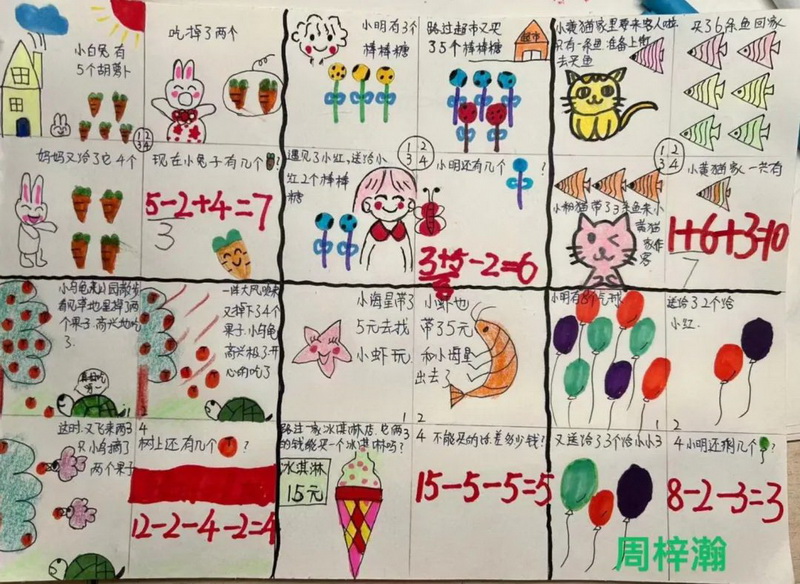 小白兔有
5个胡萝卜
吃掉了两个
1 2
3 4
妈妈又给了它4个
现在小兔子有几个?
5-2+4=7
3
小明有3个
棒棒糖
路过超市又买
了5个棒棒糖
超市
1 2
3 4
遇见了小红,送给小
红2个棒棒
糖
小明还有几个?
3+5-2=6
8
小黄猫家里要来客人啦
只有一条鱼,准备上街
去买鱼
买了6条鱼回家
1 2
3 4
小粉猫带了3条鱼来小
黄猫
家作
客
小黄猫家一共有
1+6+3=10
7
小乌龟来公园散步
看见草地上掉了两
个果子,高兴地吃
了
真好吃
1
一阵大风吹来
又掉下了4个
果子,小乌龟
高兴极了开
心的吃了
2
这时,又飞来两
只小鸟摘了
两个果子
3
4
树上还有几个?
12-2-4-2=4
小海星带了
5元去找
小虾玩
1
小虾也
带了5元
和小海星
出去了
2
路过一家冰淇淋店,它俩
的钱能买一个冰淇淋吗?
3
冰淇淋
15元
4 不能买的话差多少钱?
15-5-5=5
小明有8个气球
1
送给了2个给
小红.
2
又送给了3个给小小
3
4 小明还剩几个?
8-2-3=3
周梓瀚